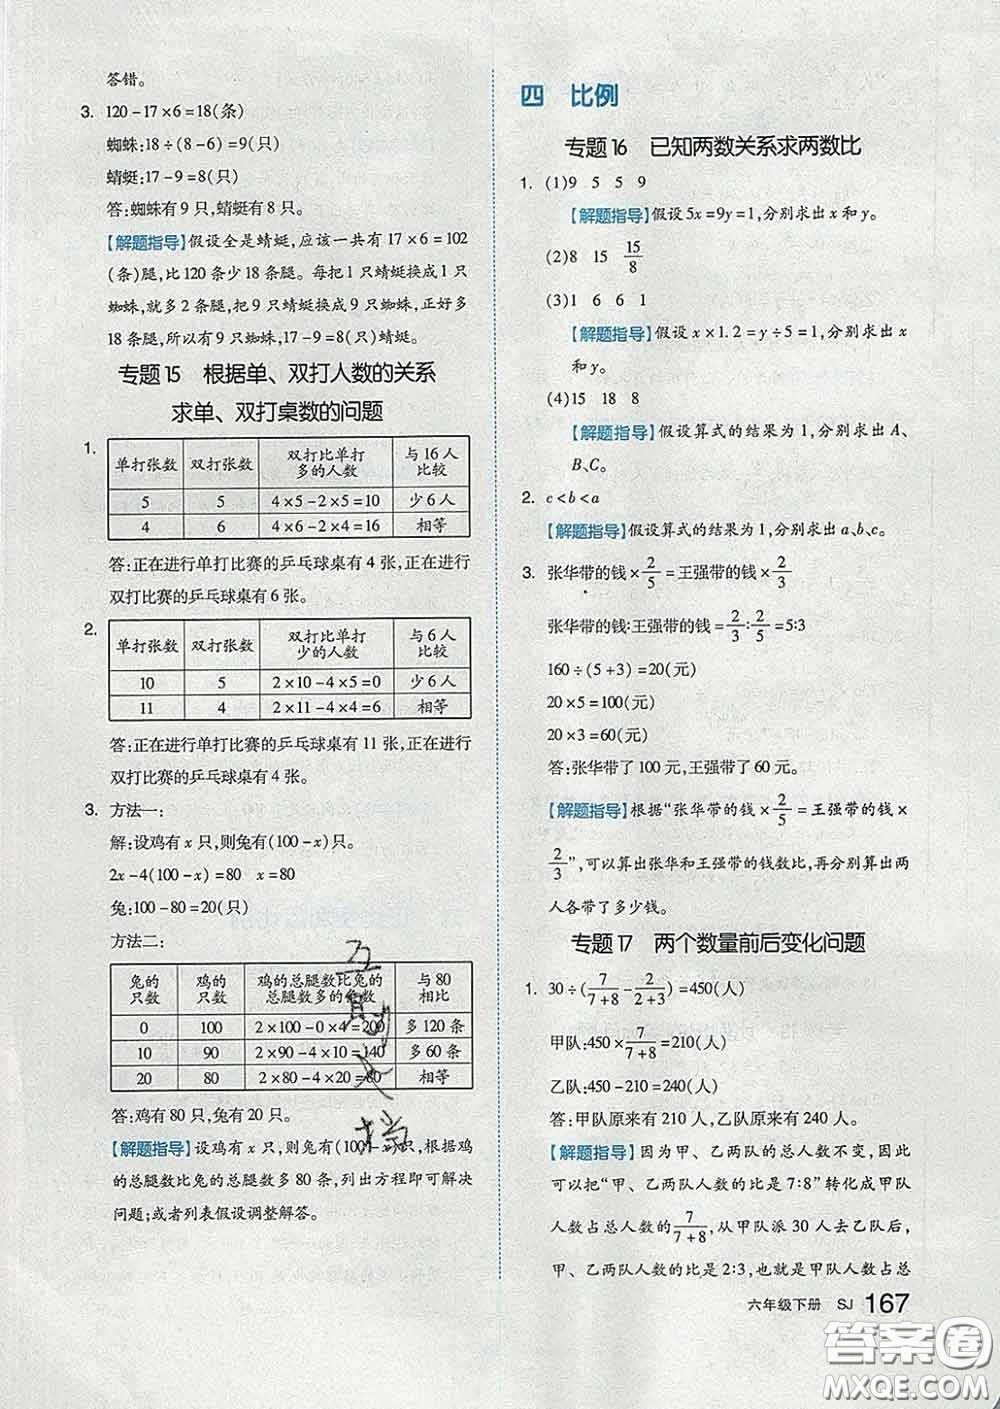 答错。
3. 120-17×6=18(条)
蜘蛛:18÷(8-6)=9(只)
蜻蜓:17-9=8(只)
答:蜘蛛有 9 只,蜻蜓有 8 只。
【解题指导】假设全是蜻蜓,应该一共有 17×6=102
(条)腿,比 120 条少 18 条腿。每把 1 只蜻蜓换成 1 只
蜘蛛,就多 2 条腿,把 9 只蜻蜓换成 9 只蜘蛛,正好多
18 条腿,所以有 9 只蜘蛛,17-9=8(只)蜻蜓。
专题 15 根据单、双打人数的关系
求单、双打桌数的问题
1.
单打张数 双打张数 双打比单打多的人数 与 16 人比较
5 5 4×5-2×5=10 少 6 人
4 6 4×6-2×4=16 相等
答:正在进行单打比赛的乒乓球桌有 4 张,正在进行
双打比赛的乒乓球桌有 6 张。
2.
单打张数 双打张数 双打比单打少的人数 与 6 人比较
10 5 2×10-4×5=0 少 6 人
11 4 2×11-4×4=6 相等
答:正在进行单打比赛的乒乓球桌有 11 张,正在进行
双打比赛的乒乓球桌有 4 张。
3. 方法一:
解:设鸡有 x 只,则兔有(100-x)只。
2x-4(100-x)=80 x=80
兔:100-80=20(只)
方法二:
兔的只数 鸡的只数 鸡的总腿数比兔的总腿数多的条数 与 80 相比
0 100 2×100-0×4=200 多 120 条
10 90 2×90-4×10=140 多 60 条
20 80 2×80-4×20=80 相等
答:鸡有 80 只,兔有 20 只。
【解题指导】设鸡有 x 只,则兔有(100-x)只,根据鸡
的总腿数比兔的总腿数多 80 条,列出方程即可解决
问题;或者列表假设调整解答。
四 比例
专题 16 已知两数关系求两数比
1. (1)9 5 5 9
【解题指导】假设 5x=9y=1,分别求出 x 和 y。
(2)8 15 15/8
(3)1 6 6 1
【解题指导】假设 x×1.2=y÷5=1,分别求出 x
和 y。
(4)15 18 8
【解题指导】假设算式的结果为 1,分别求出 A、
B、C。
2. c<b<a
【解题指导】假设算式的结果为 1,分别求出 a、b、c。
3. 张华带的钱×2/5=王强带的钱×2/3
张华带的钱:王强带的钱=2/3:2/5=5:3
160÷(5+3)=20(元)
20×5=100(元)
20×3=60(元)
答:张华带了 100 元,王强带了 60 元。
【解题指导】根据“张华带的钱×2/5=王强带的钱×
2/3”,可以算出张华和王强带的钱数比,再分别算出两
人各带了多少钱。
专题 17 两个数量前后变化问题
1. 30÷(7/7+8-2/2+3)=450(人)
甲队:450×7/7+8=210(人)
乙队:450-210=240(人)
答:甲队原来有 210 人,乙队原来有 240 人。
【解题指导】因为甲、乙两队的总人数不变,因此
可以把“甲、乙两队人数的比是 7:8”转化成甲队
人数占总人数的7/7+8,从甲队派 30 人去乙队后,
甲、乙两队人数的比是 2:3,也就是甲队人数占总
六年级下册 SJ 167
答案圈
MXQE.COM